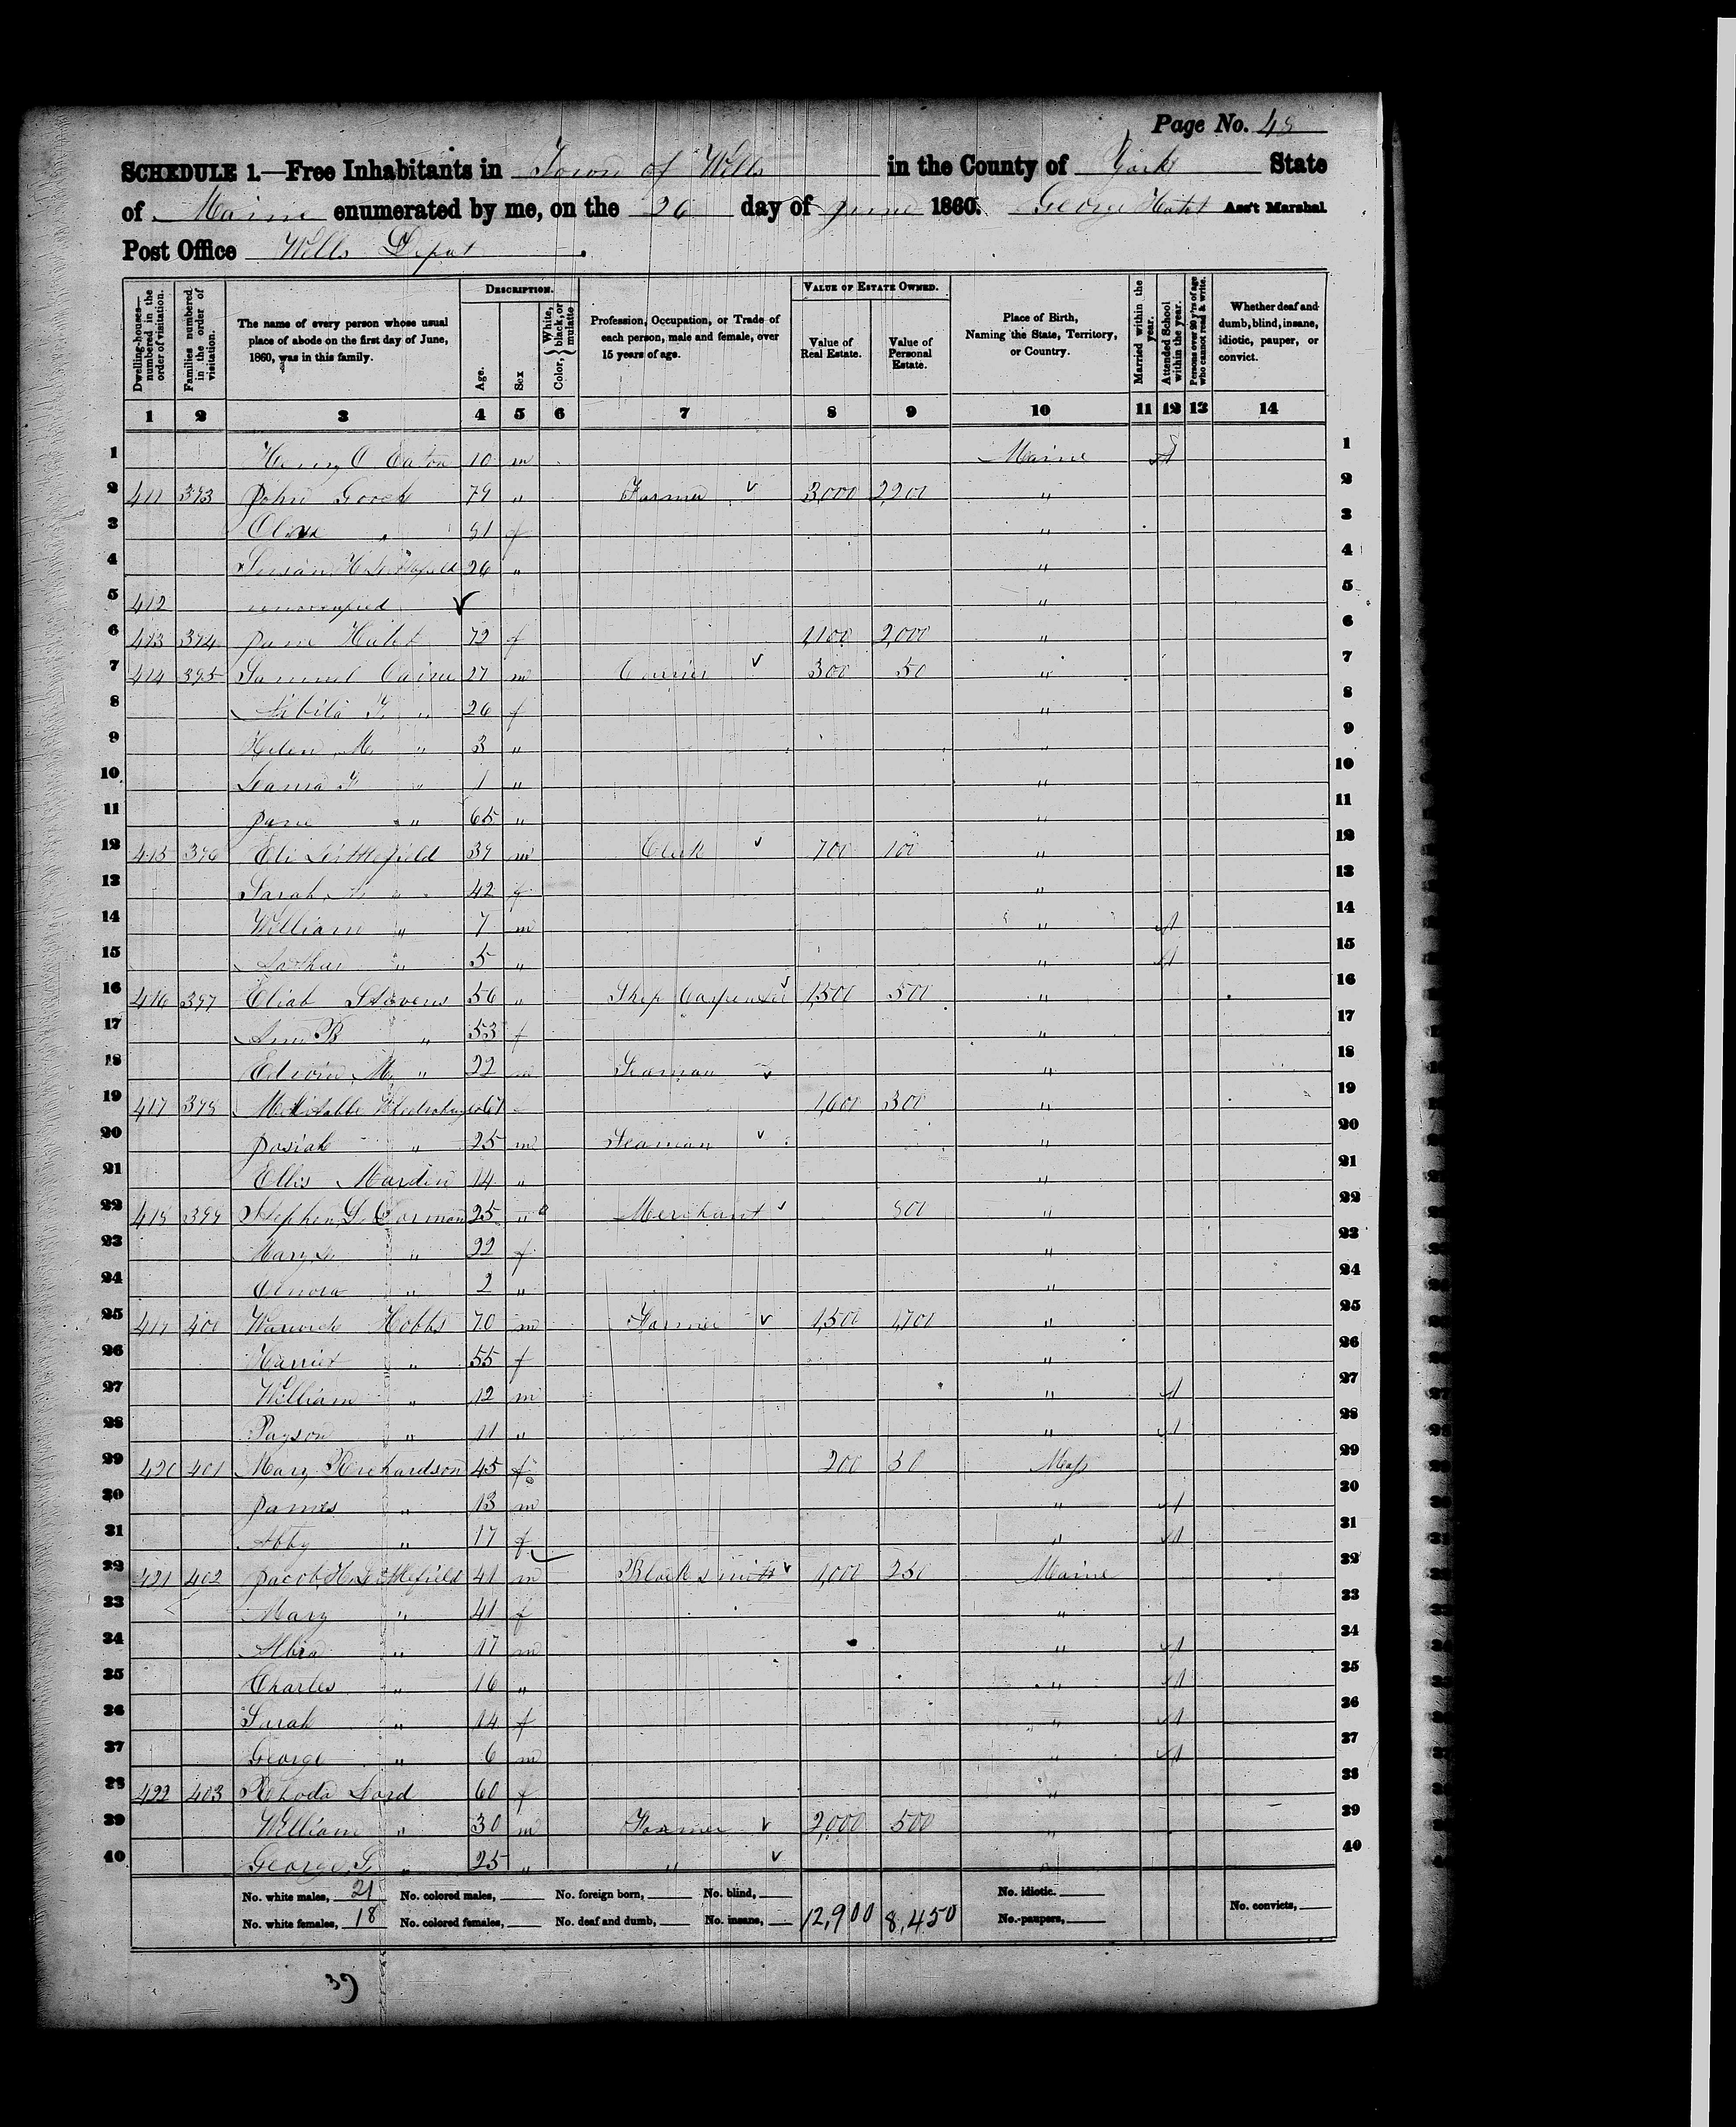 Page No. 48
SCHEDULE 1.—Free Inhabitants in Town of Wells in the County of York State
of Maine enumerated by me, on the 26 day of June 1860. George Hatch Ass't Marshal
Post Office Wells Depot.
Dwelling-houses—numbered in the order of visitation.
Families numbered in the order of visitation.
The name of every person whose usual place of abode on the first day of June, 1860, was in this family.
DESCRIPTION.
Age.
Sex
Color, { White, black, or mulatto.
Profession, Occupation, or Trade of each person, male and female, over 15 years of age.
VALUE OF ESTATE OWNED.
Value of Real Estate.
Value of Personal Estate.
Place of Birth, Naming the State, Territory, or Country.
Married within the year.
Attended School within the year.
Persons over 20 y'rs of age who cannot read & write.
Whether deaf and dumb, blind, insane, idiotic, pauper, or convict.
1 2 3 4 5 6 7 8 9 10 11 12 13 14
1 Henry C Eaton 10 m Maine 1
2 411 393 John Gooch 79 " Farmer 3,000 2,200 " 2
3 " f " 3
4 Susan H Littlefield 26 " " 4
5 412 unoccupied " 5
6 413 394 Jane Hatch 72 f 1,100 2,000 " 6
7 414 395 Samuel 27 m 300 50 " 7
8 " 26 f " 8
9 Helen M " 3 " " 9
10 " 1 " " 10
11 Jane " 65 " " 11
12 415 396 Eli Littlefield 39 m Clerk 700 100 " 12
13 Sarah " 42 f " 13
14 William " 7 m " 14
15 " 5 " " 15
16 416 397 Eliab Stevens 56 " Ship Carpenter 1,500 500 " 16
17 Ann B " 53 f " 17
18 Edwin M " 22 m Seaman " 18
19 417 398 Mehitable 67 1,600 300 " 19
20 Josiah " 25 m Seaman " 20
21 Ellis 14 " " 21
22 418 399 Stephen 25 " Merchant 800 " 22
23 Mary " 22 f " 23
24 " 2 " " 24
25 419 400 Warwick Hobbs 70 m Farmer 1,500 1,700 " 25
26 Harriet " 55 f " 26
27 William " 12 m " 27
28 Payson " 11 " " 28
29 420 401 Mary Richardson 45 f 200 50 Mass 29
30 James " 13 m " 30
31 Abby " 17 f " 31
32 421 402 Jacob H Littlefield 41 m Blacksmith 1,000 250 Maine 32
33 Mary " 41 f " 33
34 " 17 m " 34
35 Charles " 16 " " 35
36 Sarah " 14 f " 36
37 George " 6 m " 37
38 422 403 Rhoda Lord 60 f " 38
39 William " 30 m Farmer 2,000 500 " 39
40 George S " 25 " " " 40
No. white males, 21 No. colored males, No. foreign born, No. blind, No. idiotic.
No. white females, 18 No. colored females, No. deaf and dumb, No. insane, 12,900 8,450 No. paupers, No. convicts,
39